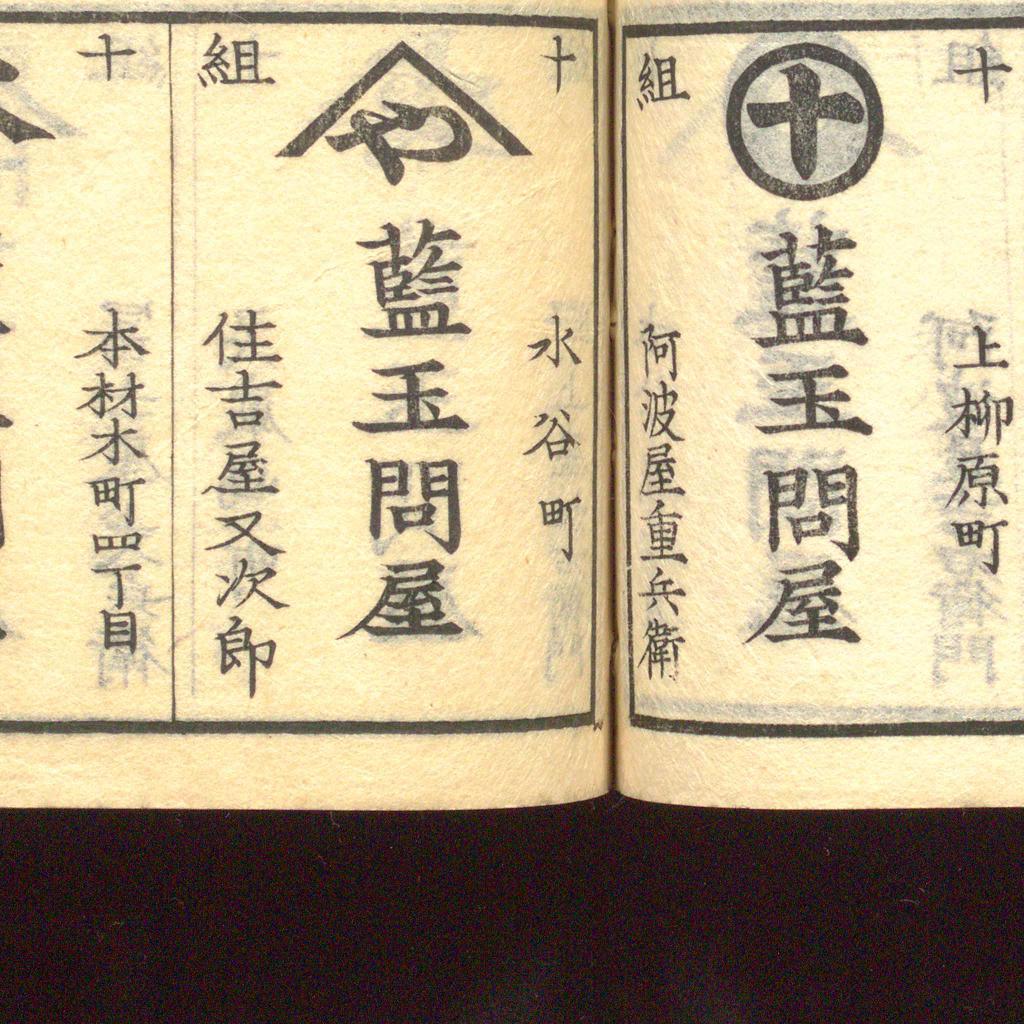 十
上柳原町
十
藍玉問屋
組
阿波屋重兵衛
十
水谷町
や
藍玉問屋
組
住吉屋又次郎
十
本材木町四丁目